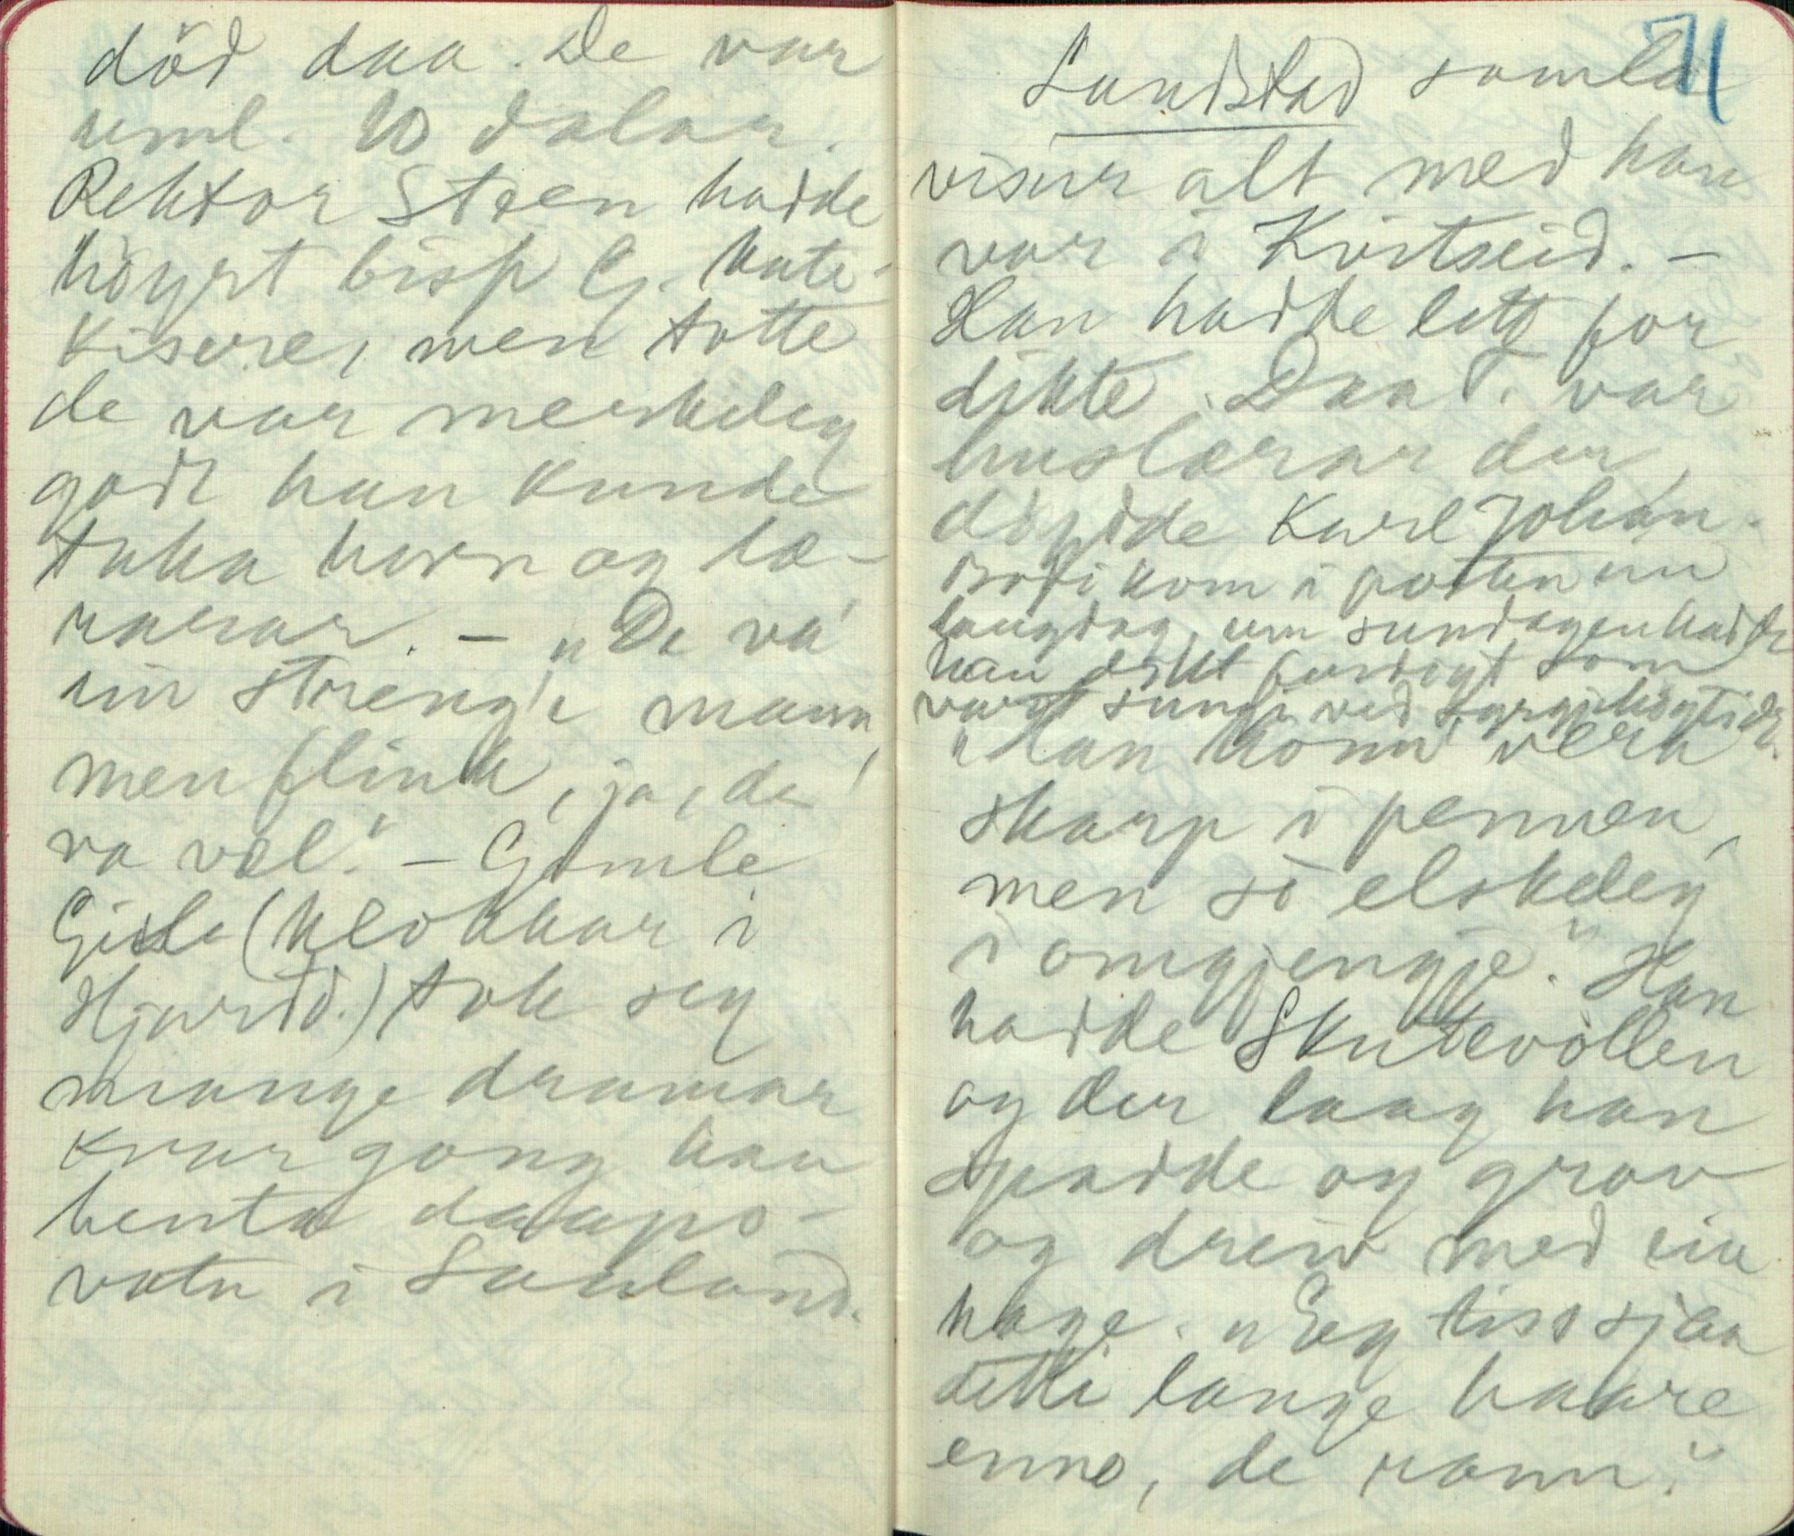 död daa. De var
uml. 10 dalar.
Rektor Steen hadde
höyrt bisp G. kate-
kisere, men totte
de var merkeleg
godt han kunde
taka born og læ-
rarar. – "De va'
ein streng'e mann,
men flink, ja, de
va væl." – Gamle
Gisle (klokkar i
Hjartd.) tok seg
mange dramar
kvar gong han
henta daaps-
vatn i Sauland.
71
Landstad samla
visur alt med han
var i Kvitseid. –
Han hadde lett for
dikte. Daa T. var
huslærar der,
döydde Karl Johan.
Bod i kom i posten ein
laugdag, um sundagen hadde
han dikt ferdigt som
vart sungi ved syrgjehögtid.
"Han konn' vera
skarp i pennen,
men so elskeleg
i omgjengje." Han
hadde Skutevollen
og der laag han
spadde og grov
og dreiv med ein
hage. "Eg tiss sjaa
detti lange haare
enno, de rann."